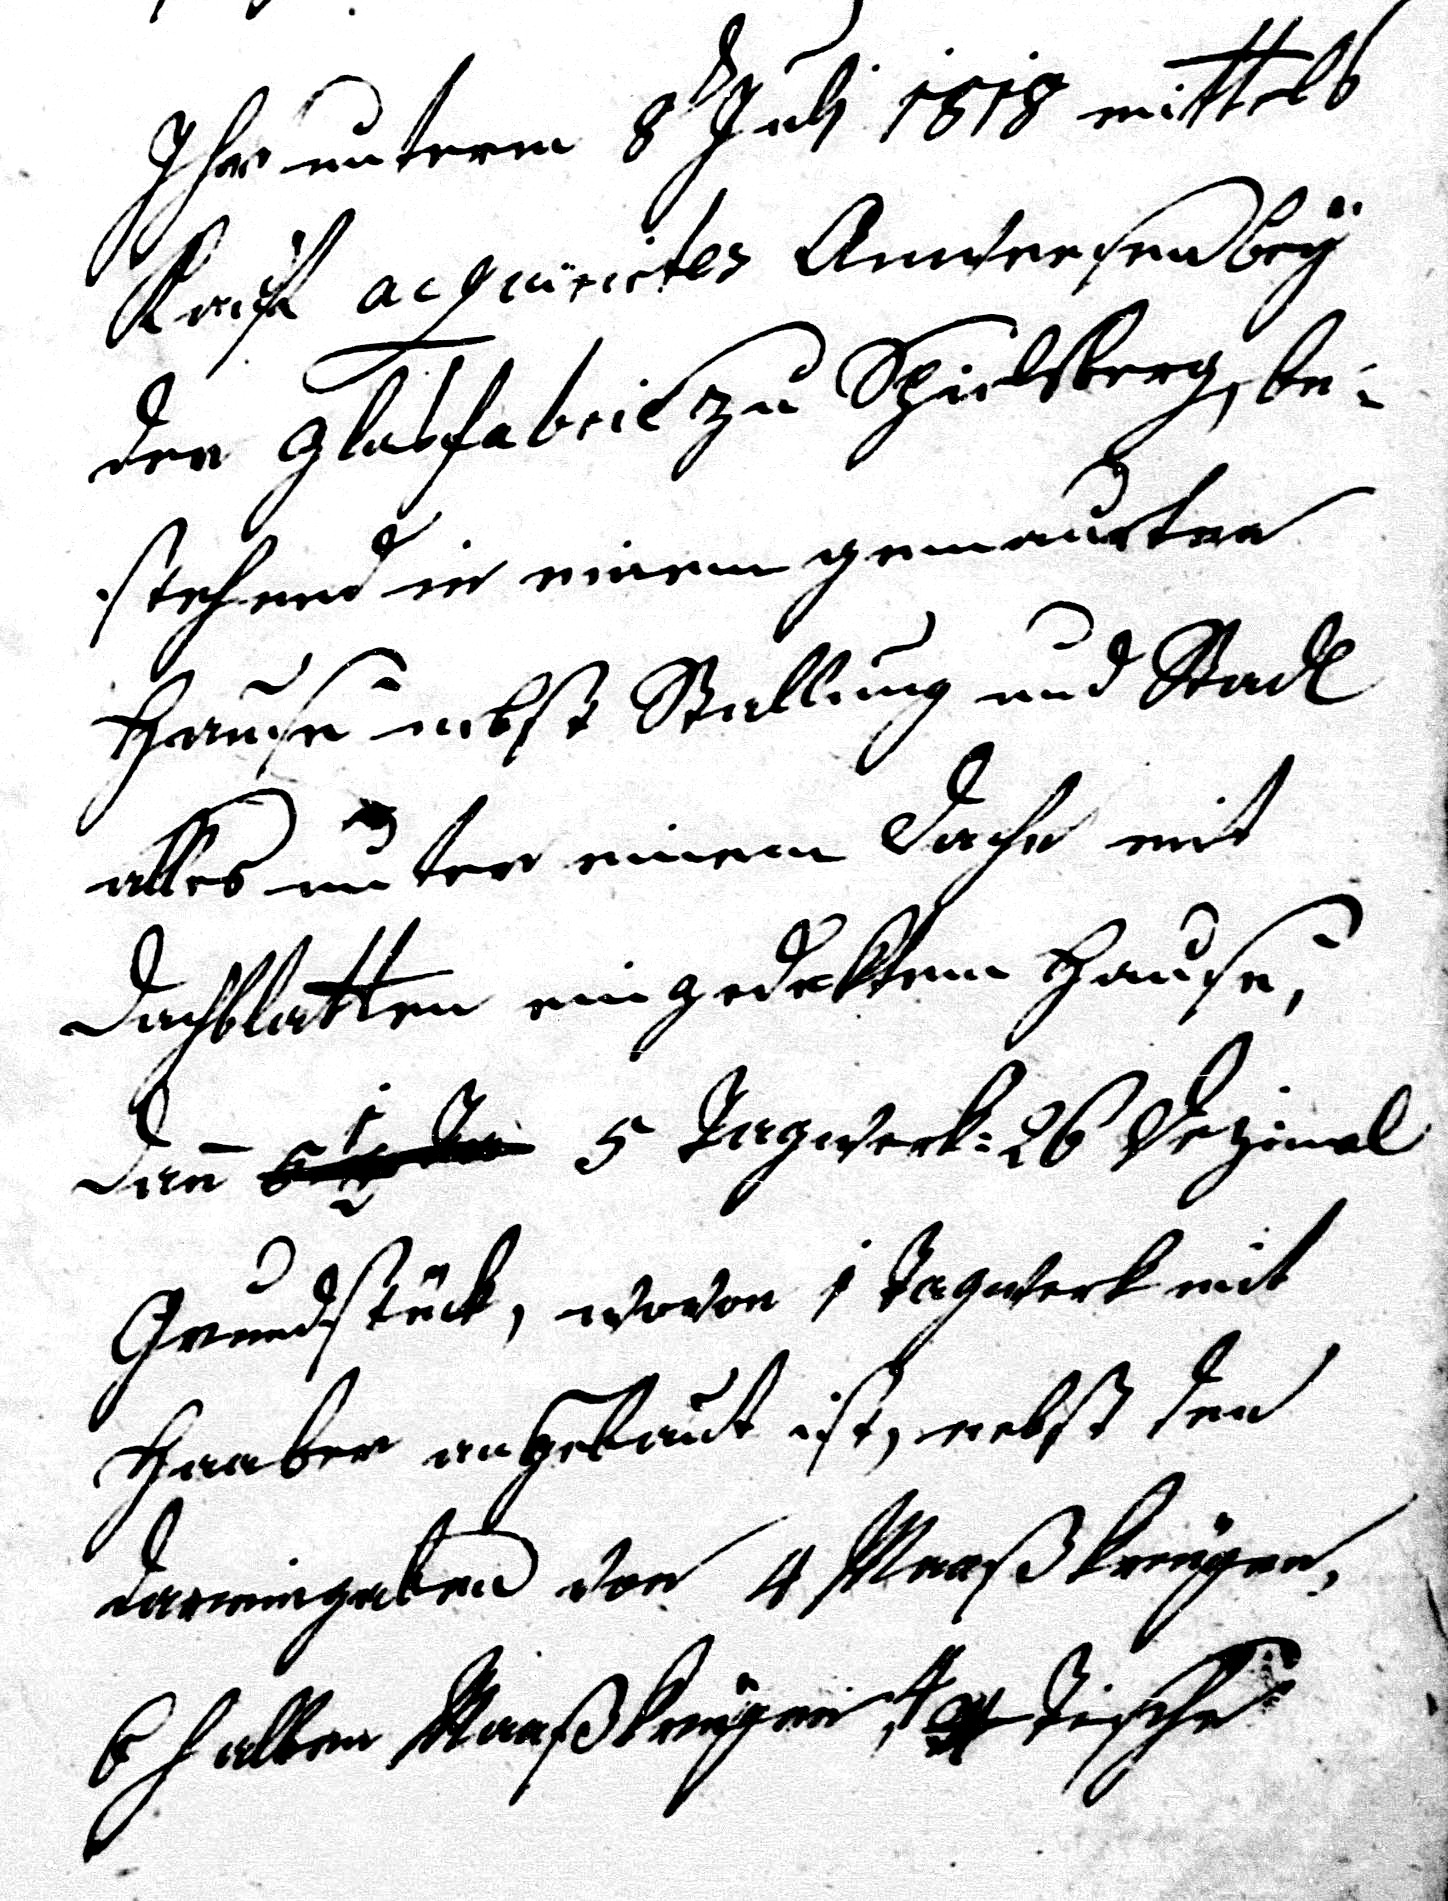 Ihr unterm 8t Juli 1818 mittels
Kauf acquirirtes Anwesen bey
der Glasfabrik zu Spielberg, be:
stehend in einem gemaurten
Hause nebst Stallung und Stadl
alles unter einem Dache mit
Dachblatten eingedektem Hause,
dann 5 Tagwerk: 26 Dezimal
Grundstück, wovon 1 Tagwerk mit
Haaber angebaut ist, nebst den
dareingaben von 4 Maaßkrügen,
6 halben Maaßkrügen, 4 Tische